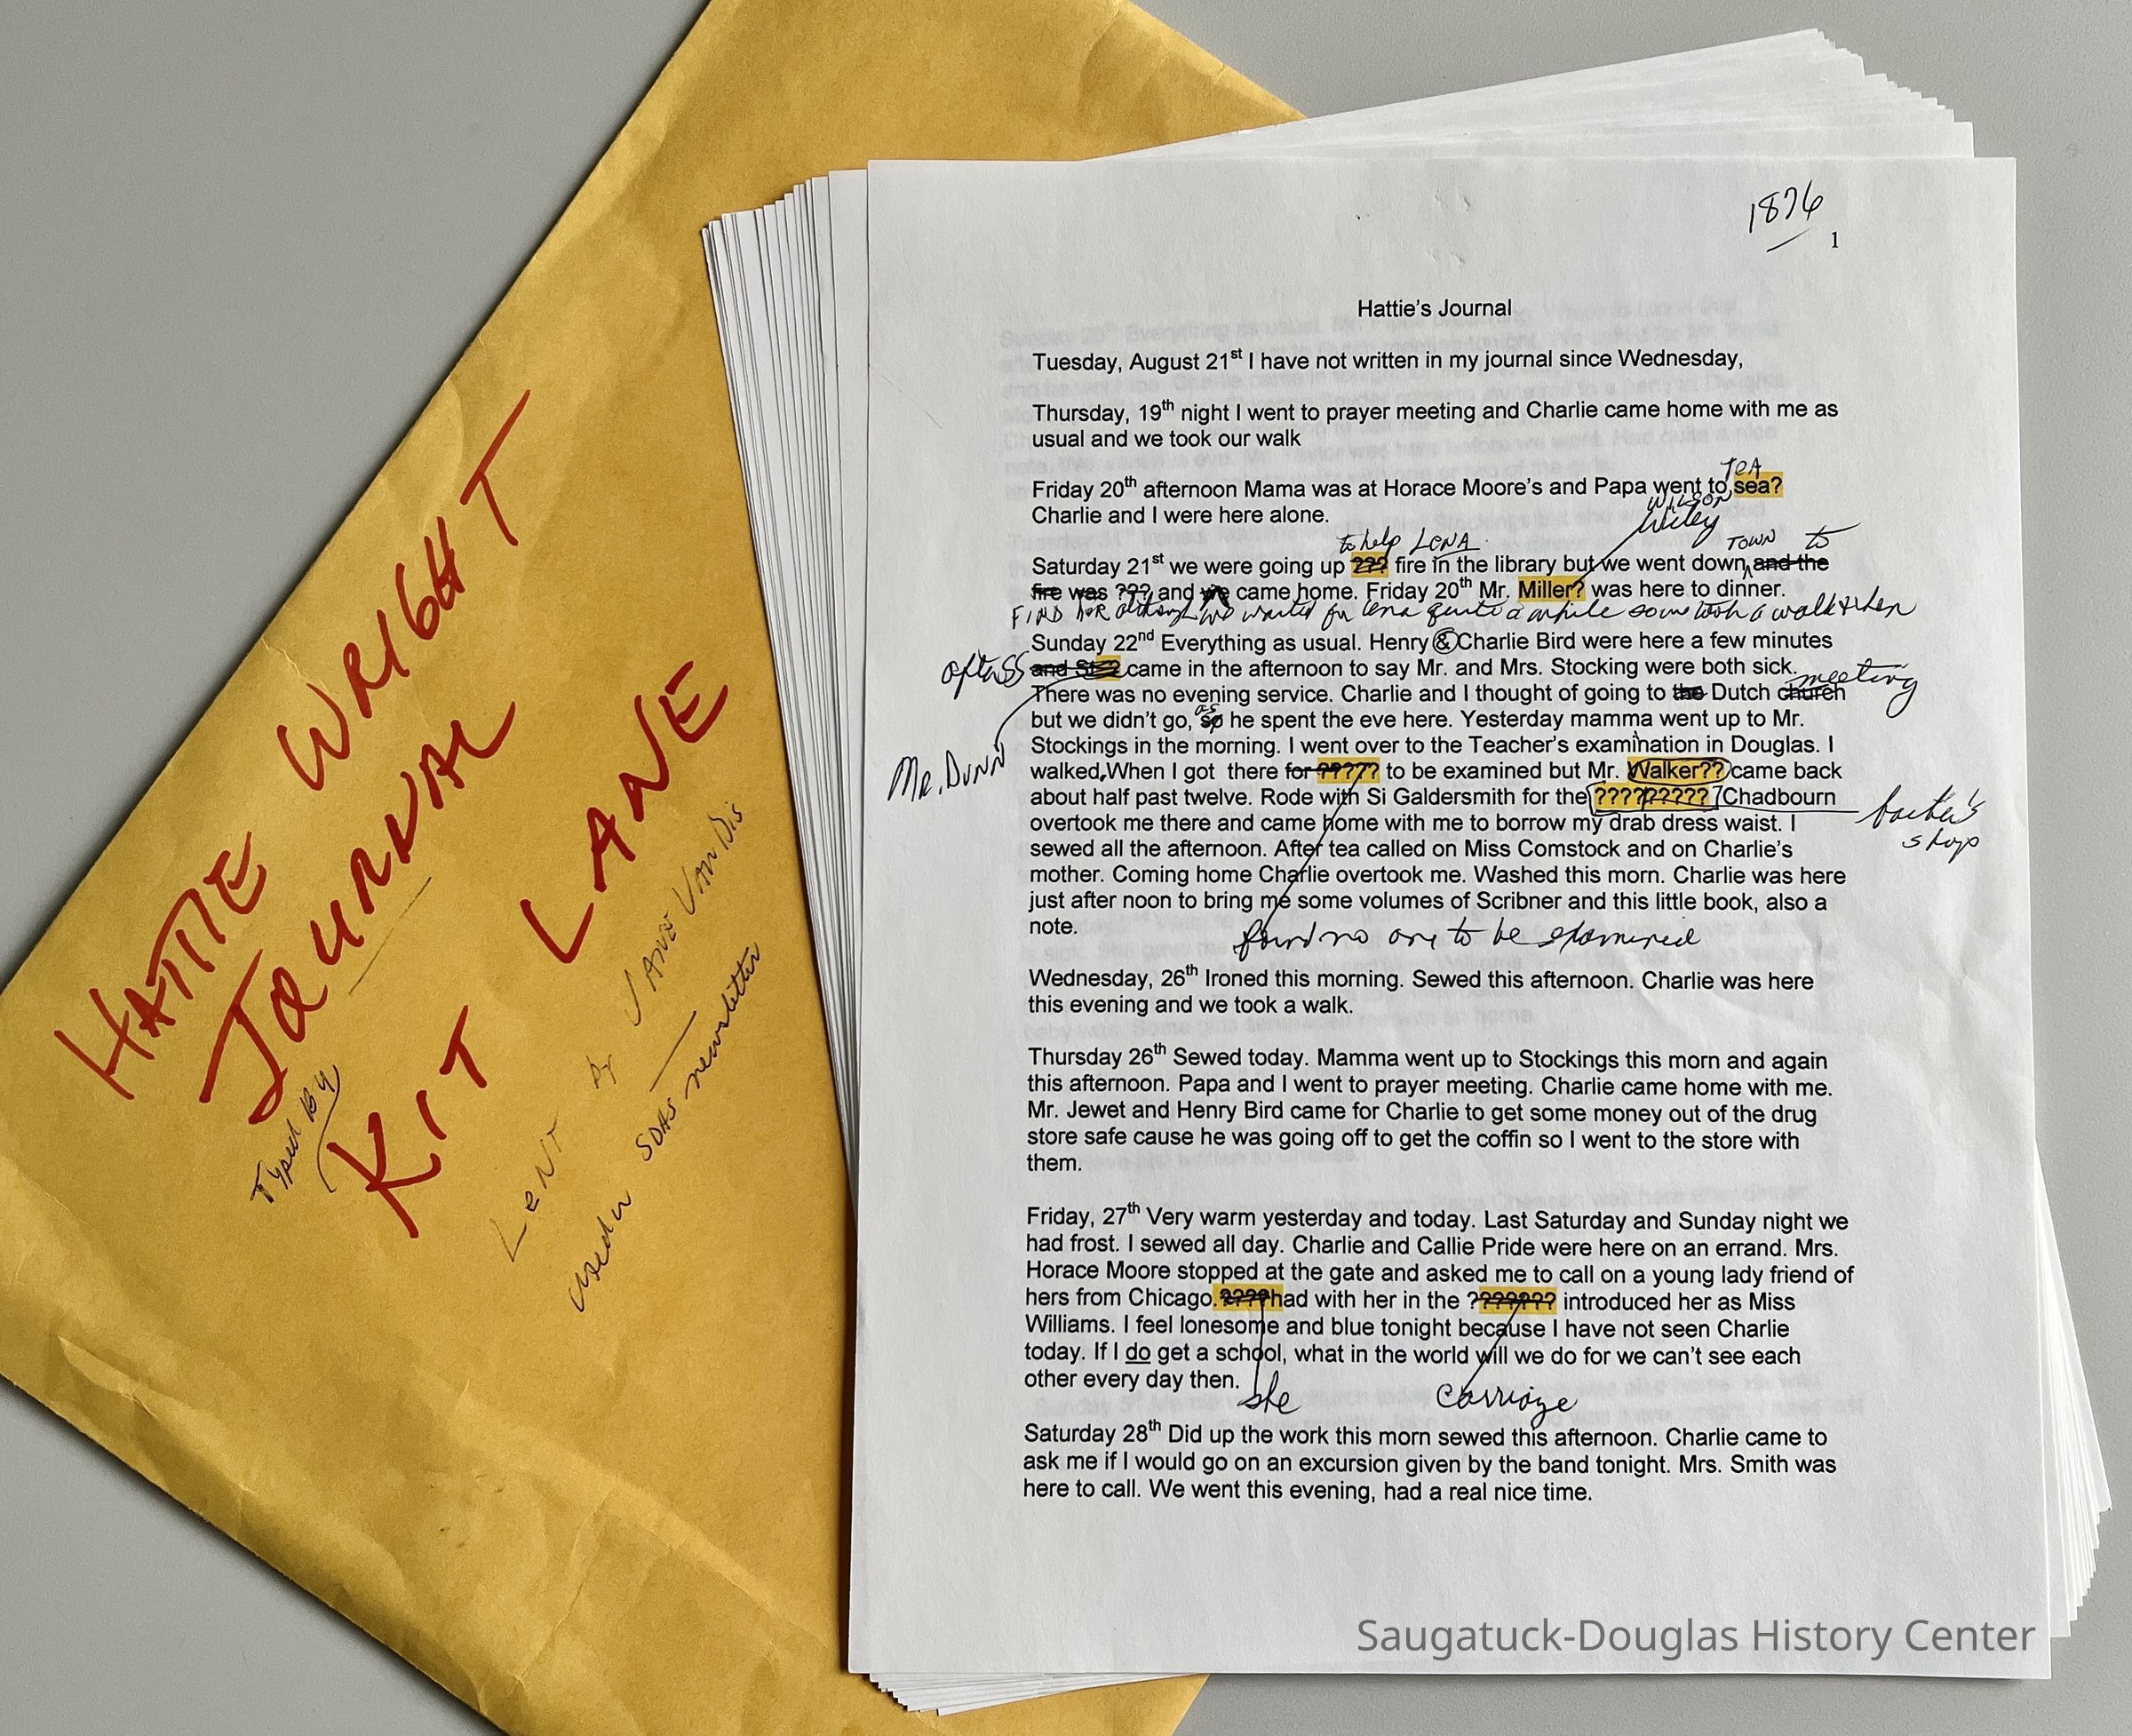 HATTIE WRIGHT
JOURNAL
Typed By
KIT LANE
LENT by JANE VAN DIS
used in SDHS newsletter
1876
1
Hattie's Journal
Tuesday, August 21st I have not written in my journal since Wednesday,
Thursday, 19th night I went to prayer meeting and Charlie came home with me as
usual and we took our walk
TEA
Friday 20th afternoon Mama was at Horace Moore's and Papa went to sea?
WILSON
Charlie and I were here alone.
Wiley
to help LENA TOWN to
Saturday 21st we were going up ??? fire in the library but we went down and the
fire was ??? and we came home. Friday 20th Mr. Miller? was here to dinner.
FIND HER although we waited for Lena quite a while some took a walk & then
Sunday 22nd Everything as usual. Henry & Charlie Bird were here a few minutes
after SS and St?? came in the afternoon to say Mr. and Mrs. Stocking were both sick.
meeting
There was no evening service. Charlie and I thought of going to the Dutch church
as
but we didn't go, so he spent the eve here. Yesterday mamma went up to Mr.
Mr. Dunn
Stockings in the morning. I went over to the Teacher's examination in Douglas. I
walked, When I got there for ????? to be examined but Mr. Walker?? came back
about half past twelve. Rode with Si Galdersmith for the ????????? Chadbourn
barber's
shop
overtook me there and came home with me to borrow my drab dress waist. I
sewed all the afternoon. After tea called on Miss Comstock and on Charlie's
mother. Coming home Charlie overtook me. Washed this morn. Charlie was here
just after noon to bring me some volumes of Scribner and this little book, also a
note.
found no one to be examined
Wednesday, 26th Ironed this morning. Sewed this afternoon. Charlie was here
this evening and we took a walk.
Thursday 26th Sewed today. Mamma went up to Stockings this morn and again
this afternoon. Papa and I went to prayer meeting. Charlie came home with me.
Mr. Jewet and Henry Bird came for Charlie to get some money out of the drug
store safe cause he was going off to get the coffin so I went to the store with
them.
Friday, 27th Very warm yesterday and today. Last Saturday and Sunday night we
had frost. I sewed all day. Charlie and Callie Pride were here on an errand. Mrs.
Horace Moore stopped at the gate and asked me to call on a young lady friend of
hers from Chicago. ???? had with her in the ??????? introduced her as Miss
Williams. I feel lonesome and blue tonight because I have not seen Charlie
today. If I do get a school, what in the world will we do for we can't see each
other every day then.
she carriage
Saturday 28th Did up the work this morn sewed this afternoon. Charlie came to
ask me if I would go on an excursion given by the band tonight. Mrs. Smith was
here to call. We went this evening, had a real nice time.
Saugatuck-Douglas History Center